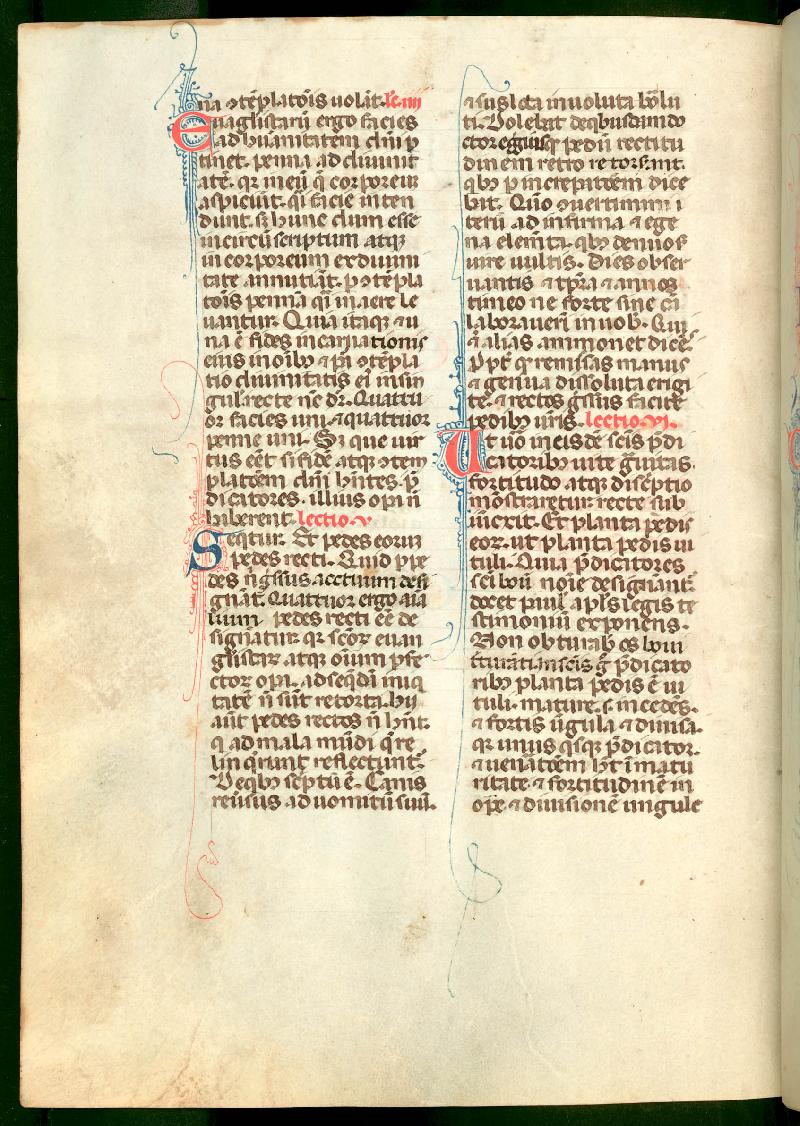 na ɔtēplatōis uolāt. lc̄. iiii
Euaglistarū ergo facies
ad hūanitatem p̄
tinet. penna ad diuinit
atē. qr in eū q̄ corporeū
aspiciūt. q̄i facie inten
dunt. sꝫ hunc dum esse
incircūscriptum atqꝫ
incorporeum ex diuini
tate annūtiāt. p ɔtēpla
tōis pennā q̄i in aere le
uantur. Quia itaqꝫ ⁊ u
na ē fides incarnationis
eius in oībꝰ ⁊ pı̄ ɔtēpla
tio diuinitatis eı̄ in sin
gul' recte nc̄ dr̄. Quattu
or facies uni. ⁊ quattuor
penne uni. Sꝫ que uir
tus eēt si fidē atqꝫ ɔtem
platōem dn̄i hn̄tes. p̄
dicatores. illius opı̄ n̄
hiberent. lectio. v
Seqtur. Et pedes eorum
pedes recti. Quid p̄ pe
des n̄ gr̄ssus actuum desi
gnāt. Quattuor ergo aīa
lium pedes recti eē de
signātur qr scōr euan
glistar atqꝫ oīum ꝑfe
ctor opı̄. ad seqdū iniq
tatē n̄ sūt retorta. hii
aūt pedes rectos n̄ hn̄t.
q ad mala mūdi q̄ re
linqrunt reflectunt.
De qbꝰ sc̄ptū ē. Canis
reūsus ad uomitū suū.
⁊ sus lota in uoluta
ti. Volebat de qbusdam do
ctor egius pedū rectitu
dinem retro retorserint.
qbꝰ p increpatōem dice
bit. Quō ɔuertimini i
terū ad infirma ⁊ ege
na elem̄ta. qbꝰ denuo s'
uire uultis. Dies obser
uantis ⁊ tp̄ra ⁊ annos
timeo ne forte sine cā
laborauerī in uob'. Qui
ꝰ alias ammonet dicēs
Ppt' q remissas manus
⁊ genua dissoluta erigi
te. ⁊ rectos gr̄ssus facite
pedibꝰ ur̄is. lectio. vi.
Ut uō in eisdē scı̄s p̄di
catoribꝰ uite gr̄uitas.
fortitudo atqꝫ discretio
mōstraretur recte sub
iūxit. Et planta pedis
eor. ut planta pedis ui
tuli. Quia p̄dicatores
sc̄i boū noīe designant'
docet paul' apl's legis te
stimoniū exponens.
Non obturab' os boui
trituranti in sc̄is g̊ p̄dicato
ribꝰ planta pedis ē ui
tuli. mature. s. incedēs.
⁊ fortis ūgula ⁊ diuisa.
qr unus qsqꝫ p̄dicator.
⁊ uenatōem hr̄ ī matu
ritate ⁊ fortitudinē in
opē ⁊ diuisionē ungule